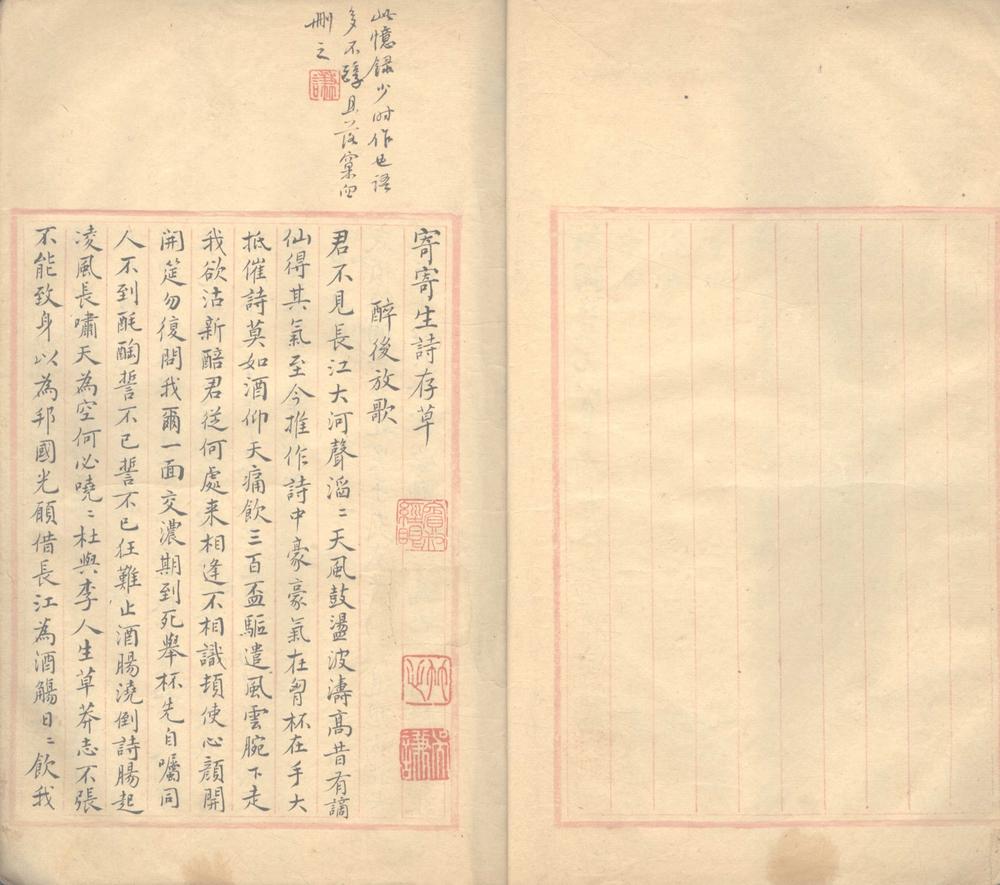 此憶録少時作也語
多不醇且落窠臼
刪之
謙
寄寄生詩存草
醉後放歌
君不見長江大河聲滔〻天風鼓盪波濤高昔有謫
仙得其氣至今推作詩中豪豪氣在胷杯在手大
抵催詩莫如酒仰天痛飲三百盃驅遣風雲腕下走
我欲沽新醅君從何處来相逢不相識頓使心顔開
開筵勿復問我爾一面交濃期到死舉杯先自囑同
人不到酕醄誓不已誓不已狂難止酒腸澆倒詩腸起
凌風長嘯天為空何必嘵〻杜與李人生草莽志不張
不能致身以為邦國光願借長江為酒觴日〻飲我
經眼
吳
謙